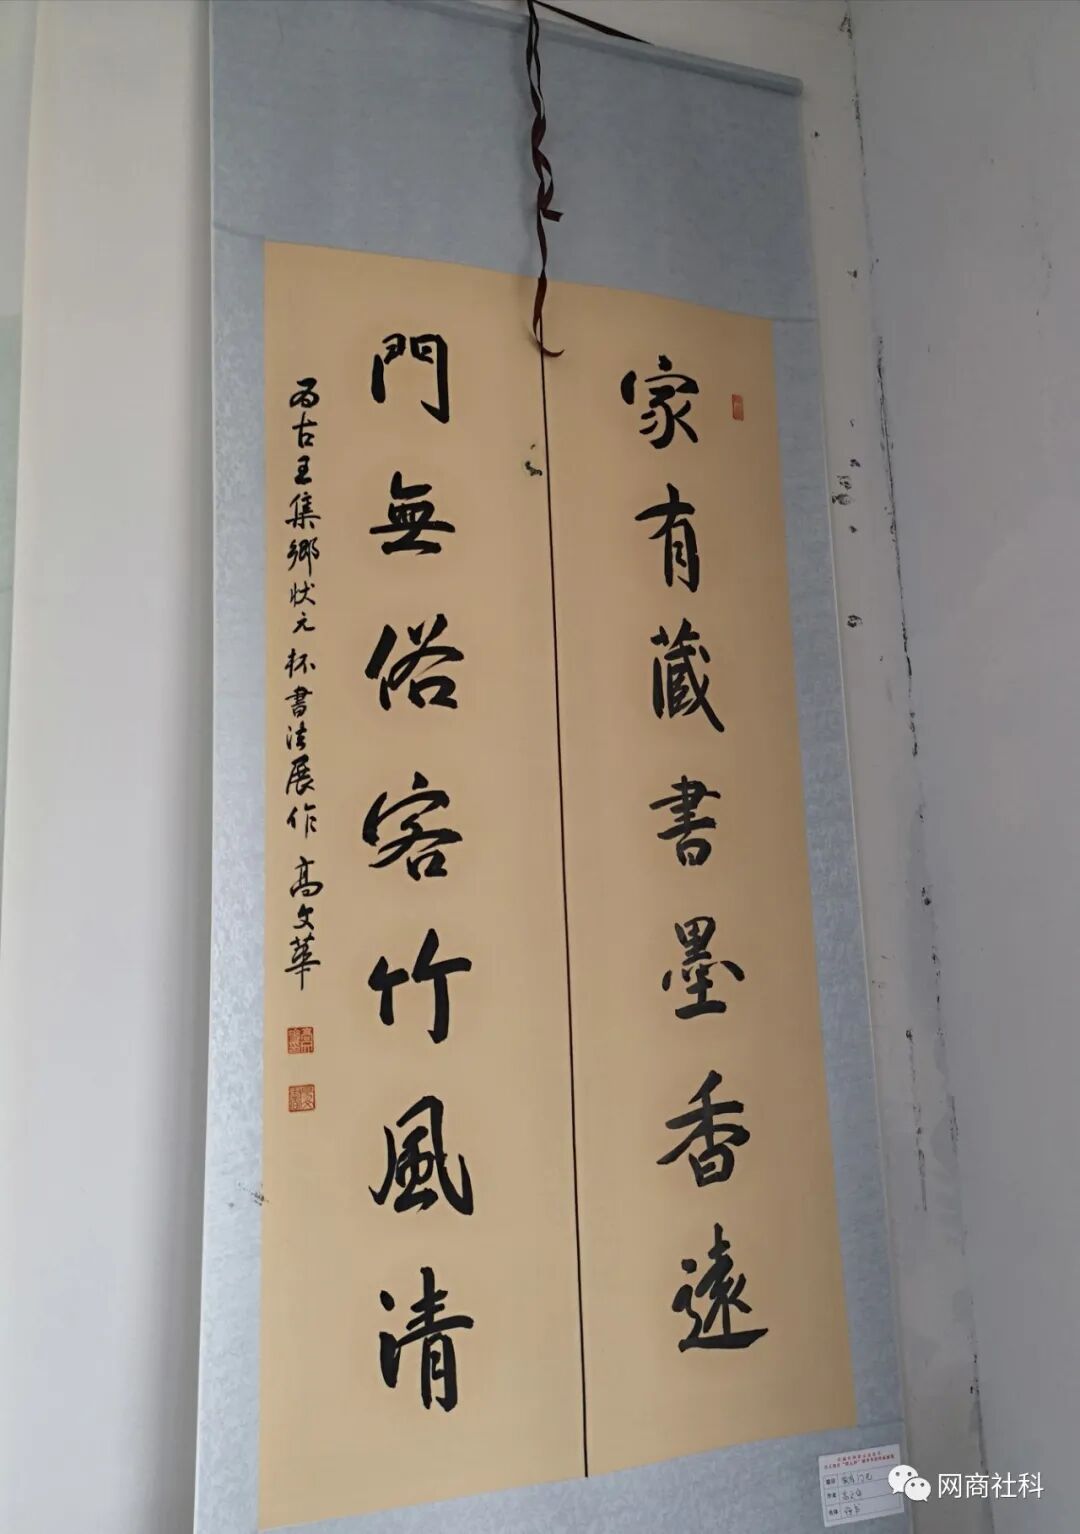 家有藏書墨香遠
門無俗客竹風清
為古王集鄉狀元杯書法展作 高文華
网商社科